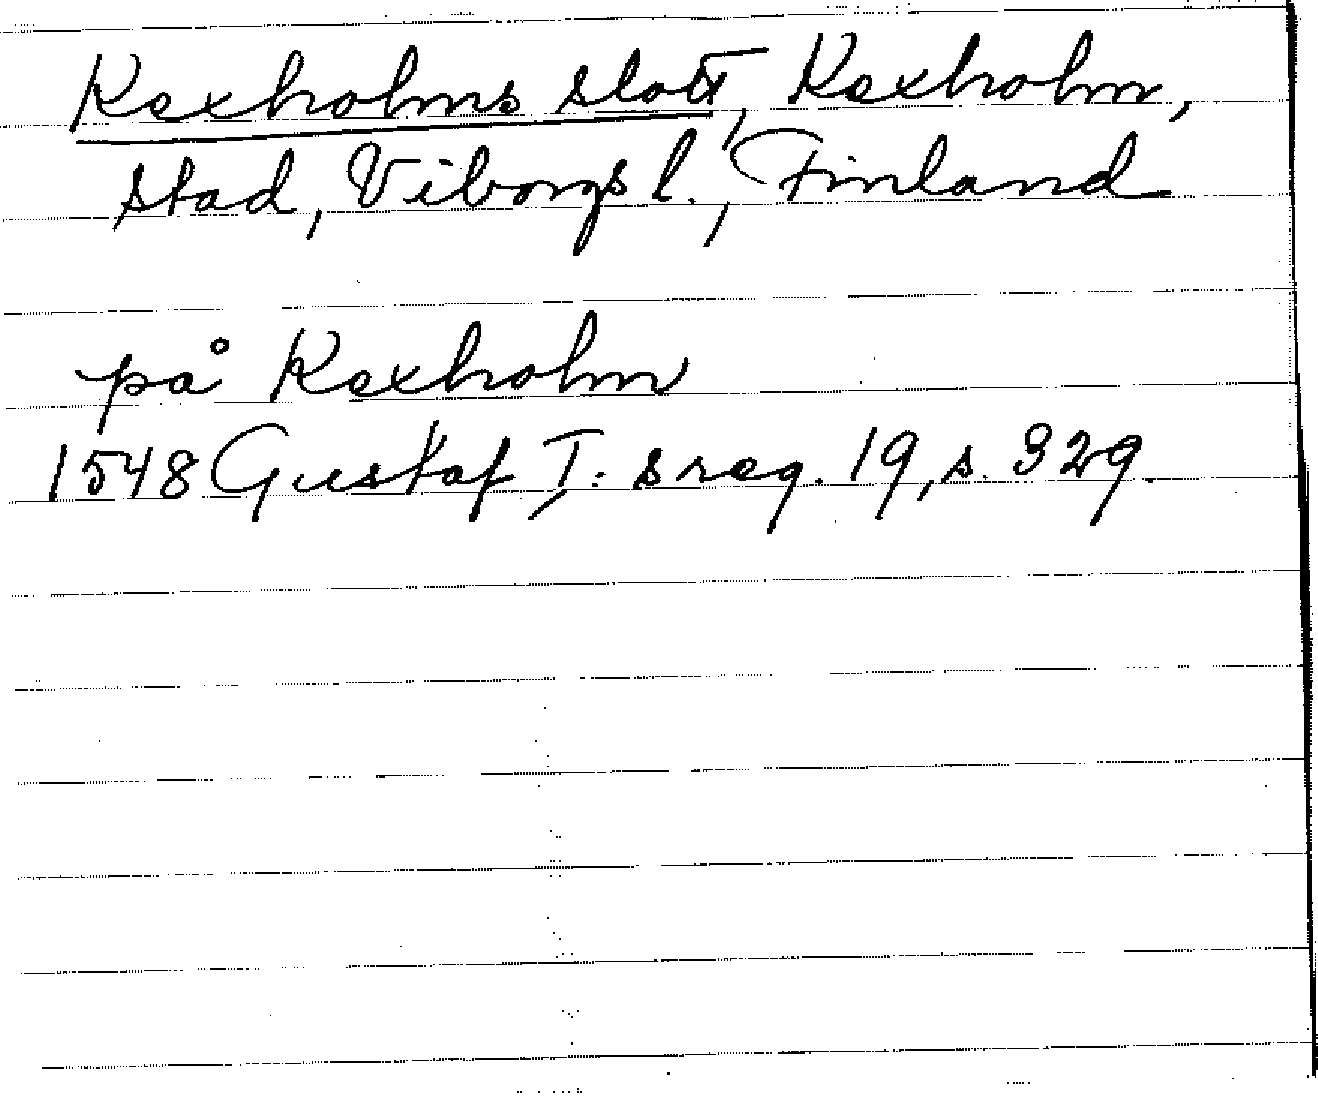 Kexholms slott, Kexholm,
stad, Viborgs l., Finland
på Kexholm
1548 Gustaf I:s reg. 19, s. 329